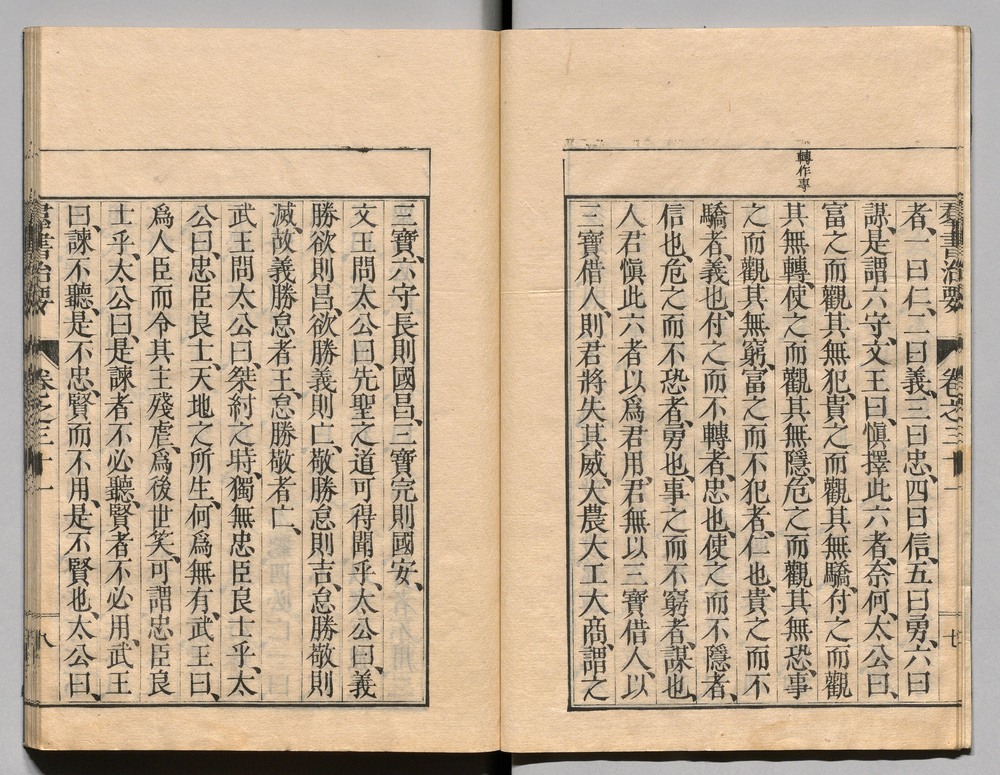 群書治要 卷之三十一 七
轉作專
者、一曰仁、二曰義、三曰忠、四曰信、五曰勇、六曰
謀、是謂六守、文王曰、愼擇此六者、奈何、太公曰、
富之而觀其無犯、貴之而觀其無驕、付之而觀
其無轉、使之而觀其無隱、危之而觀其無恐、事
之而觀其無窮、富之而不犯者、仁也、貴之而不
驕者、義也、付之而不轉者、忠也、使之而不隱者、
信也、危之而不恐者、勇也、事之而不窮者、謀也、
人君愼此六者以爲君用、君無以三寶借人、以
三寶借人、則君將失其威、大農大工大商、謂之
三寶、六守長則國昌、三寶完則國安、
文王問太公曰、先聖之道可得聞乎、太公曰、義
勝欲則昌、欲勝義則亡、敬勝怠則吉、怠勝敬則
滅、故義勝怠者王、怠勝敬者亡、
武王問太公曰、桀紂之時、獨無忠臣良士乎、太
公曰、忠臣良士、天地之所生、何爲無有、武王曰、
爲人臣而令其主殘虐、爲後世笑、可謂忠臣良
士乎、太公曰、是諫者不必聽、賢者不必用、武王
曰、諫不聽、是不忠、賢而不用、是不賢也、太公曰、
群書治要 卷之三十一 八